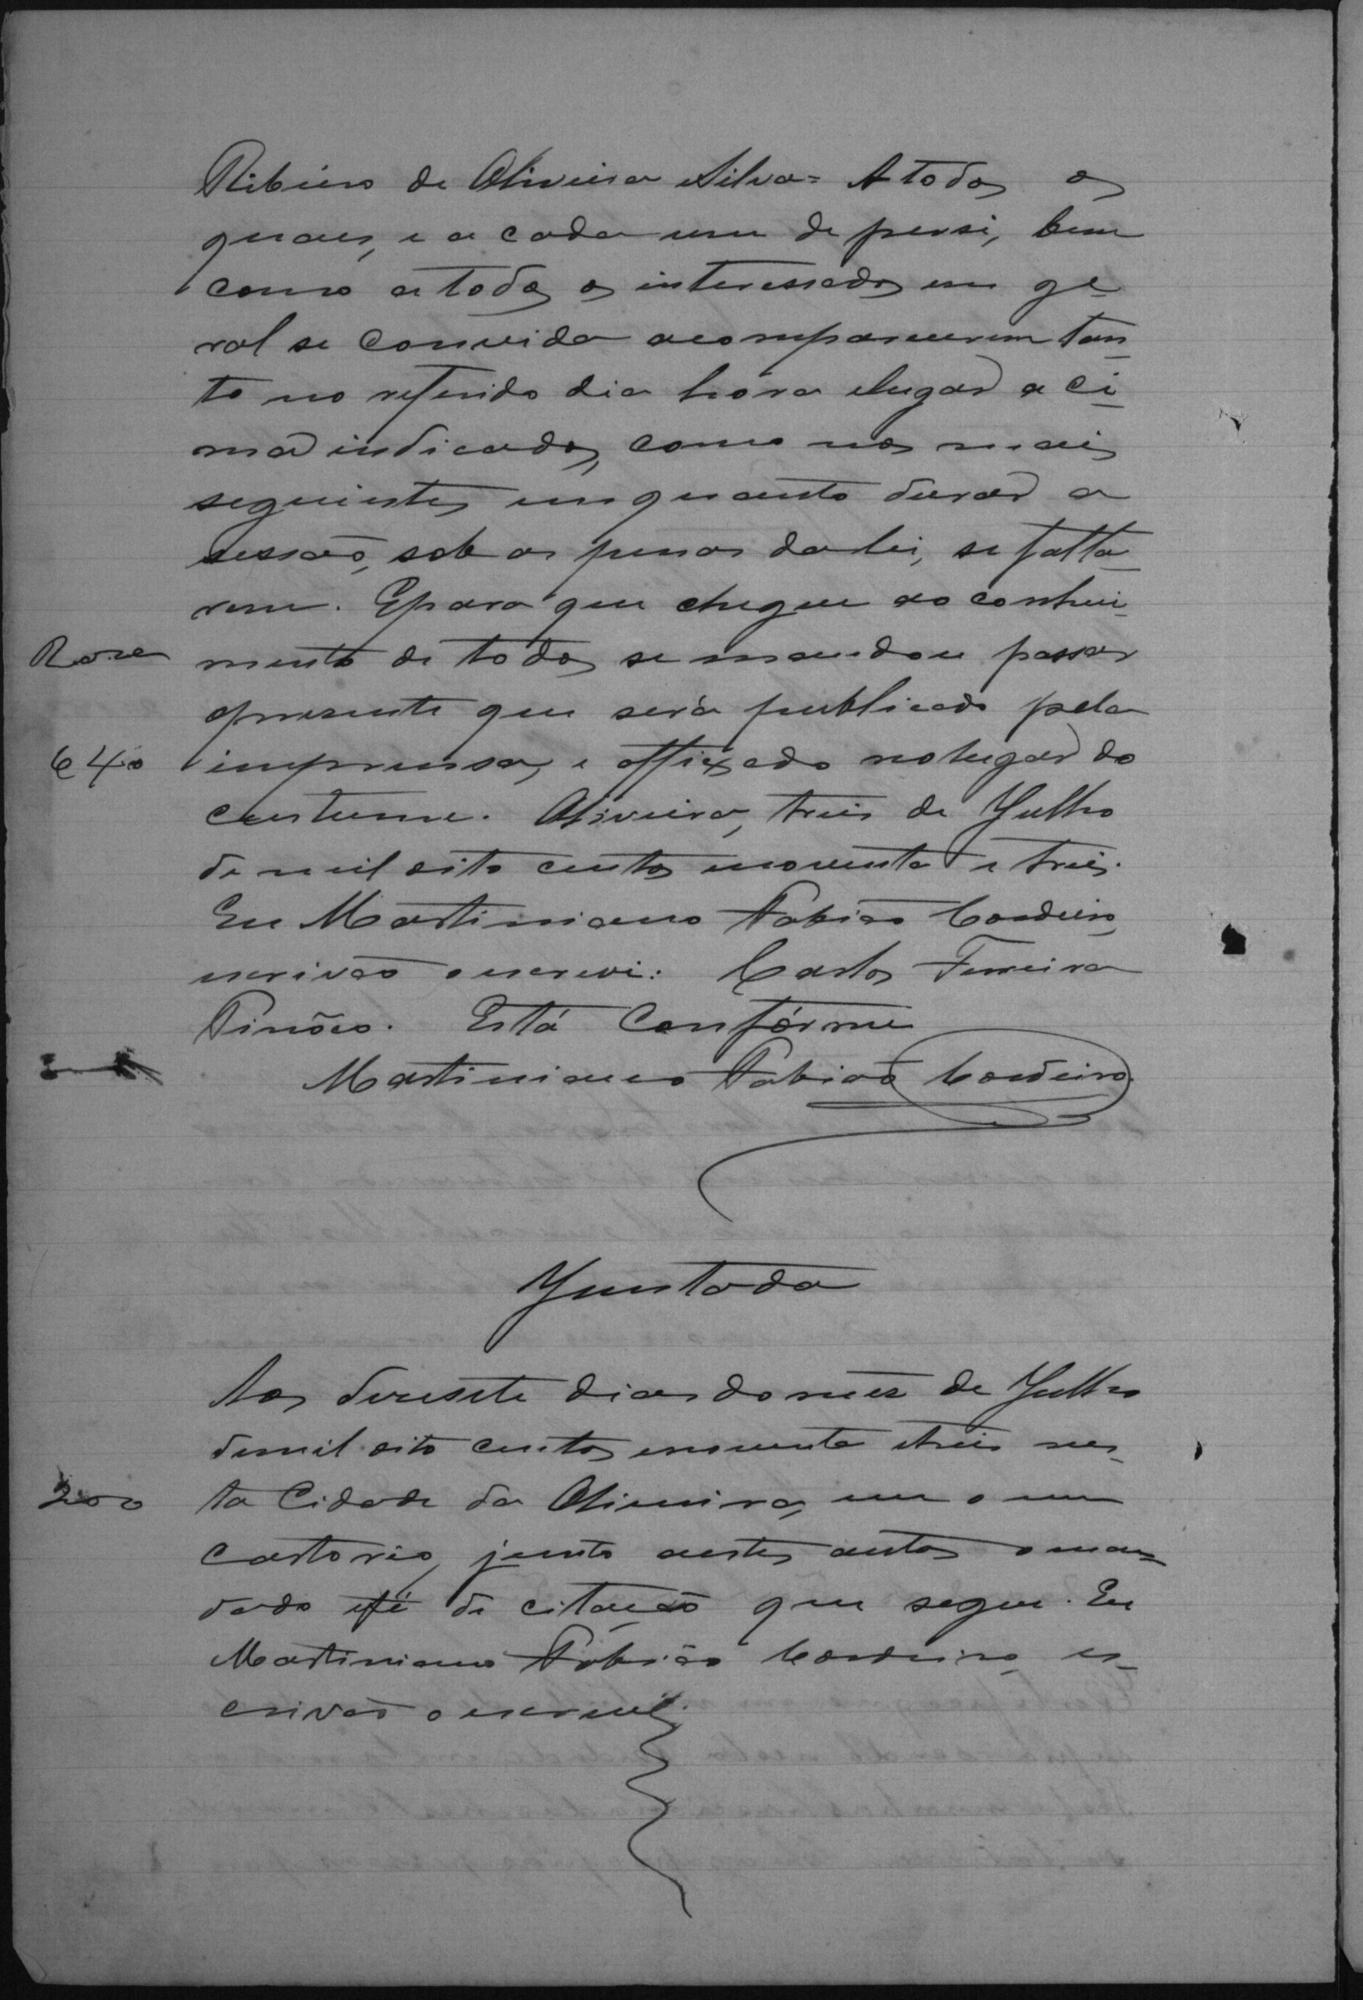 Ribeiro de Oliveira e Silva= A todos os
quaes, e a cada um de persi, bem
como a todos os interessados em ge-
ral se convida a comparecerem tan-
to no referido dia hóra e lugar a ci-
ma indicados, como nos mais
seguintes emquanto durar a
sessão, sob as penas da lei, se falta-
rem. E para que chegue ao conheci-
Raza mento de todos se mandou passar
o presente que será publicado pela
640 imprensa, e affixado no lugar do
custume. Oliveira, treis de Julho
de mil oito centos noventa e treis.
Eu Martiniano Fabião Cordeiro,
escrivão o escrevi: Carlos Ferreira
Tinôco. Está Confórme
Martiniano Fabião Cordeiro.
Juntada
Aos desesete dias do mes de Julho
de mil oito centos enoventa e treis nes-
200 ta Cidade da Oliveira, em o meu
cartorio, junto a estes autos o man-
dado e fé de citação que segue. Eu
Martiniano Fabião Cordeiro es-
crivão o escrevi.